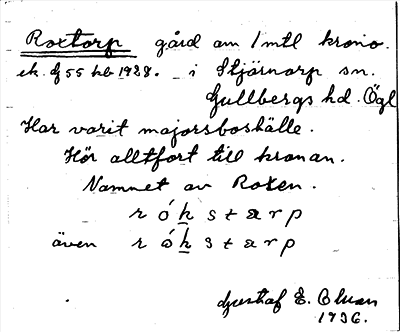 Roxtorp gård om 1 mtl krono.
ek. bl 55 hb 1928. i Stjärnorp sn.
Gullbergs hd. Ögl
Har varit majorsboställe.
Hör alltfort till kronan.
Namnet av Roxen.
r ó k s t a r p
även r ó k s t a r p
Gustaf E. Olsson
1936.